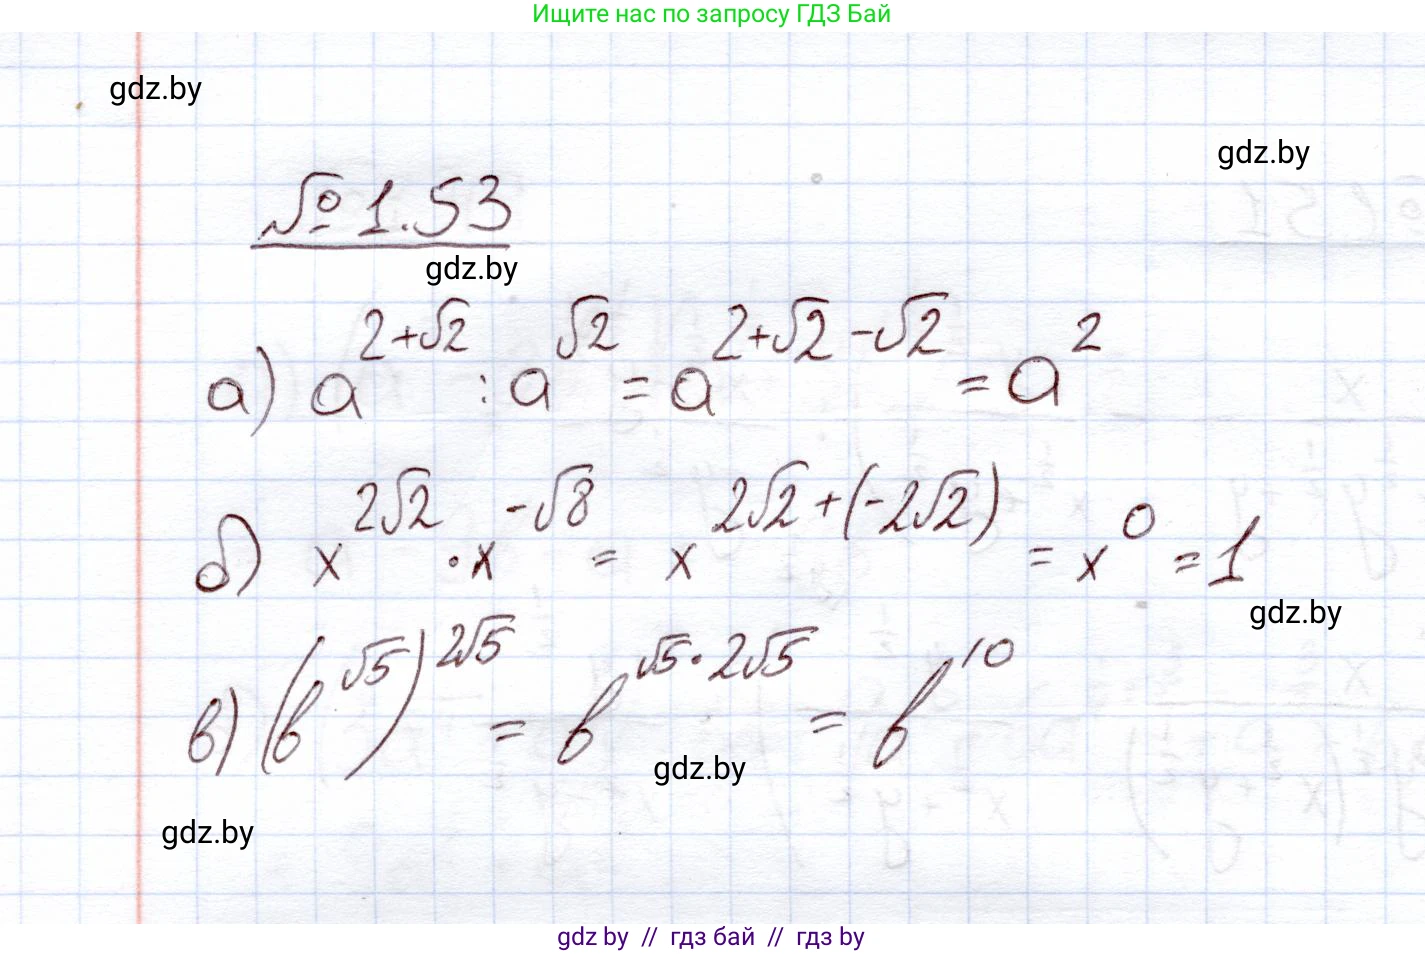 Ищите нас по запросу ГДЗ Бай
gdz.by
gdz.by
№ 1.53
gdz.by
а) a^{2+√2} : a^{√2} = a^{2+√2-√2} = a^2
б) x^{2√2} · x^{-√8} = x^{2√2+(-2√2)} = x^0 = 1
gdz.by
в) (b^{√5})^{2√5} = b^{√5·2√5} = b^{10}
gdz.by
gdz.by
gdz by // гдз бай // гдз by